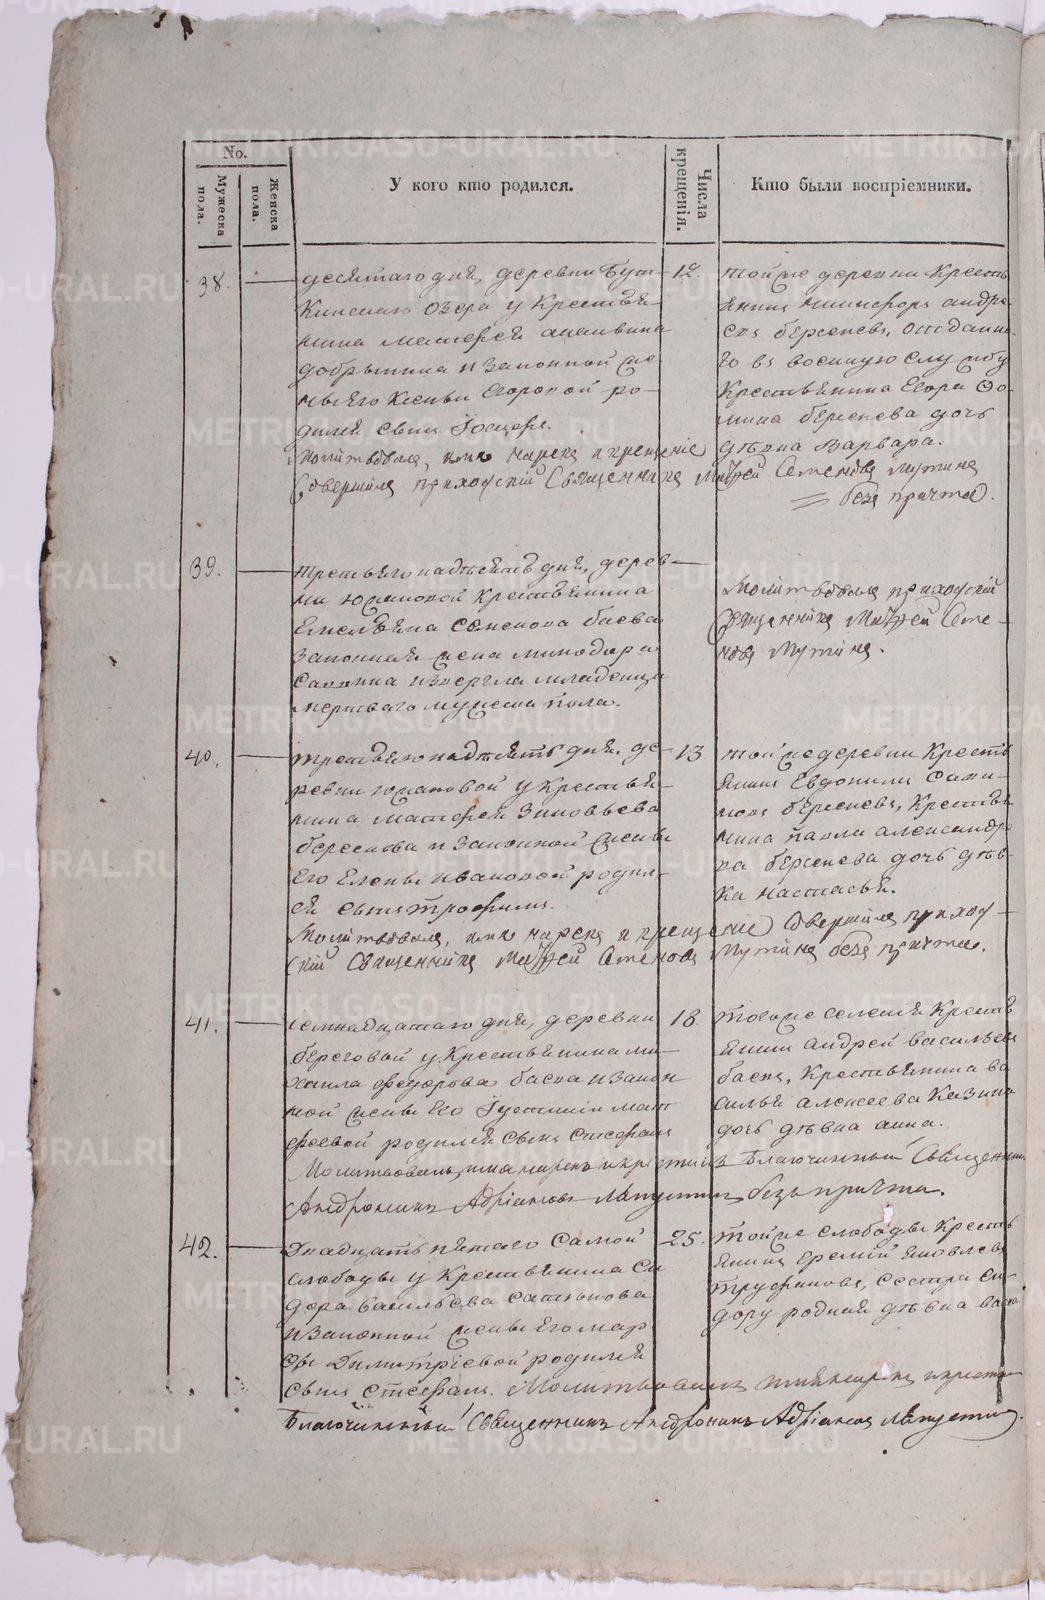 No.
Мужеска пола.
Женска пола.
У кого кто родился.
Числа крещенія.
Кто были воспріемники.
38.
десятаго дня, деревни Бут-
кинскаго озера у Крестья-
нина
добрынина и Законной же-
ны его Ксеньи Егоровой ро-
дился сынъ
Молитвовалъ, имя нарекъ и крещеніе
Совершилъ приходскій Священникъ Матѳей Семеновъ Мутинъ
безъ причта.
12
тойже деревни Кресть
янинъ Никифоръ андре-
евъ берсеневъ, отданна-
го въ военную службу
Крестьянина Егора Ѳо-
мина берсенева дочь
дѣвка Варвара.
39.
третьягонадцать дня, дерев-
ни юлановой Крестьянина
Семенова баева
Законная жена Минодора
извергла младенца
мертваго мужеска пола.
Молитвовалъ приходскій
Священникъ Матѳей Семе-
новъ Мутинъ.
40.
третьягонадцать дня, де-
ревни юлановой у Крестья-
нина Матфея Зиновьева
берсенева и Законной жены
Его Елены Ивановой родил-
ся сынъ трофимъ.
Молитвовалъ, имя нарекъ и крещеніе Совершилъ приход-
скій Священникъ Матѳей Семеновъ Мутинъ безъ причта.
13
тойже деревни Кресть
янинъ Евдокимъ
новъ берсеневъ, Крестья
нина павла александро
ва берсенева дочь дѣв-
ка настасья.
41.
Семнадцатаго дня, деревни
береговой у Крестьянина ми-
хаила федорова баева и закон
ной жены Его Іустиніи мат
феевой родился сынъ стефанъ
Молитвовалъ, имя нарекъ и крестилъ Благочинный Священникъ
Андроникъ Адріановъ безъ причта.
18
тогоже селенія Кресть
янинъ андрей васильевъ
баевъ, Крестьянина ва
силья алексеева Казина
дочь дѣвка анна.
42.
Двадцать пятаго Самой
слободы у Крестьянина Си
дора васильева
и законной жены его мар
ѳы Димитріевой родился
сынъ стефанъ. Молитвовалъ имя нарекъ и крестилъ
Благочинный Священникъ Андроникъ Адріановъ
25.
тойже слободы Кресть
янинъ Еремій яковлевъ
труфановъ, сестра Си-
дору родная дѣвка